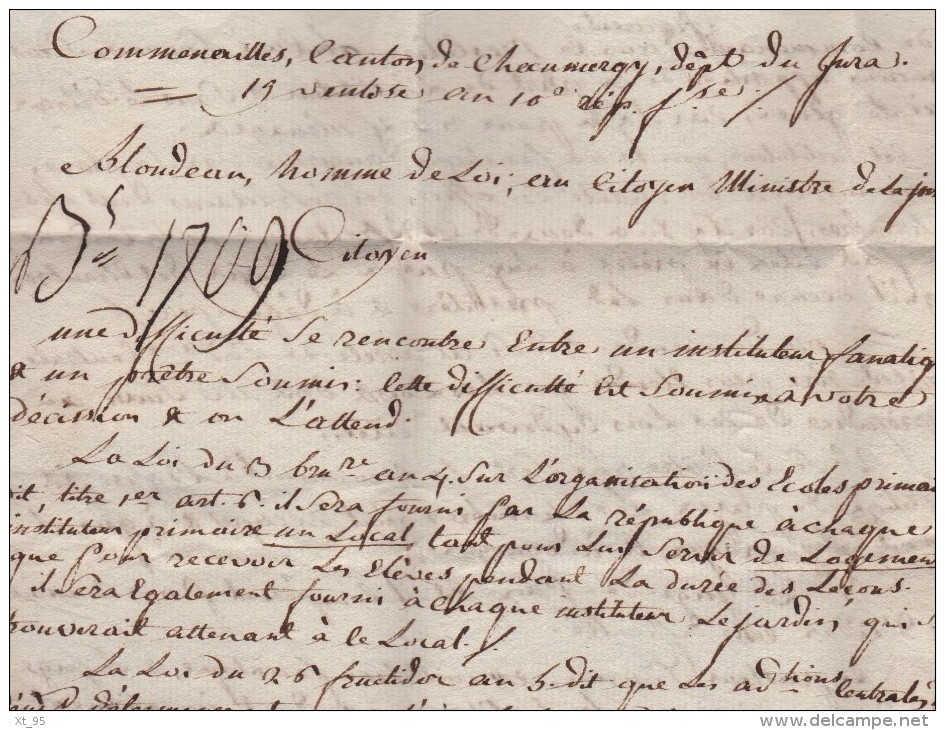 Commenailles, Canton de Chaumergy, dépt du Jura.
19 ventose an 10e rép. fse. /
Blondeau, homme de Loi, au Citoyen Ministre de la jus
1799
Citoyen
une difficulté se rencontre Entre un instituteur fanatiq
& un prêtre Soumis: Cette difficulté Est Soumise à votre
décission & on L'attend.
La Loi du 3 brmre an 4, sur L'organisation des Ecoles primai
dit, titre 1er art. 6. il sera fourni par La république à chaque
instituteur primaire un Local, tant pour Lui Servir de Logement
que pour recevoir Les Elèves pendant La durée des Leçons.
il Sera Egalement fourni à chaque instituteur Le jardin qui s
trouverait attenant à ce Local. /.
La Loi du 26 fructidor an 5. dit que Les adtions Centrales
Xt_95
delcampe.net